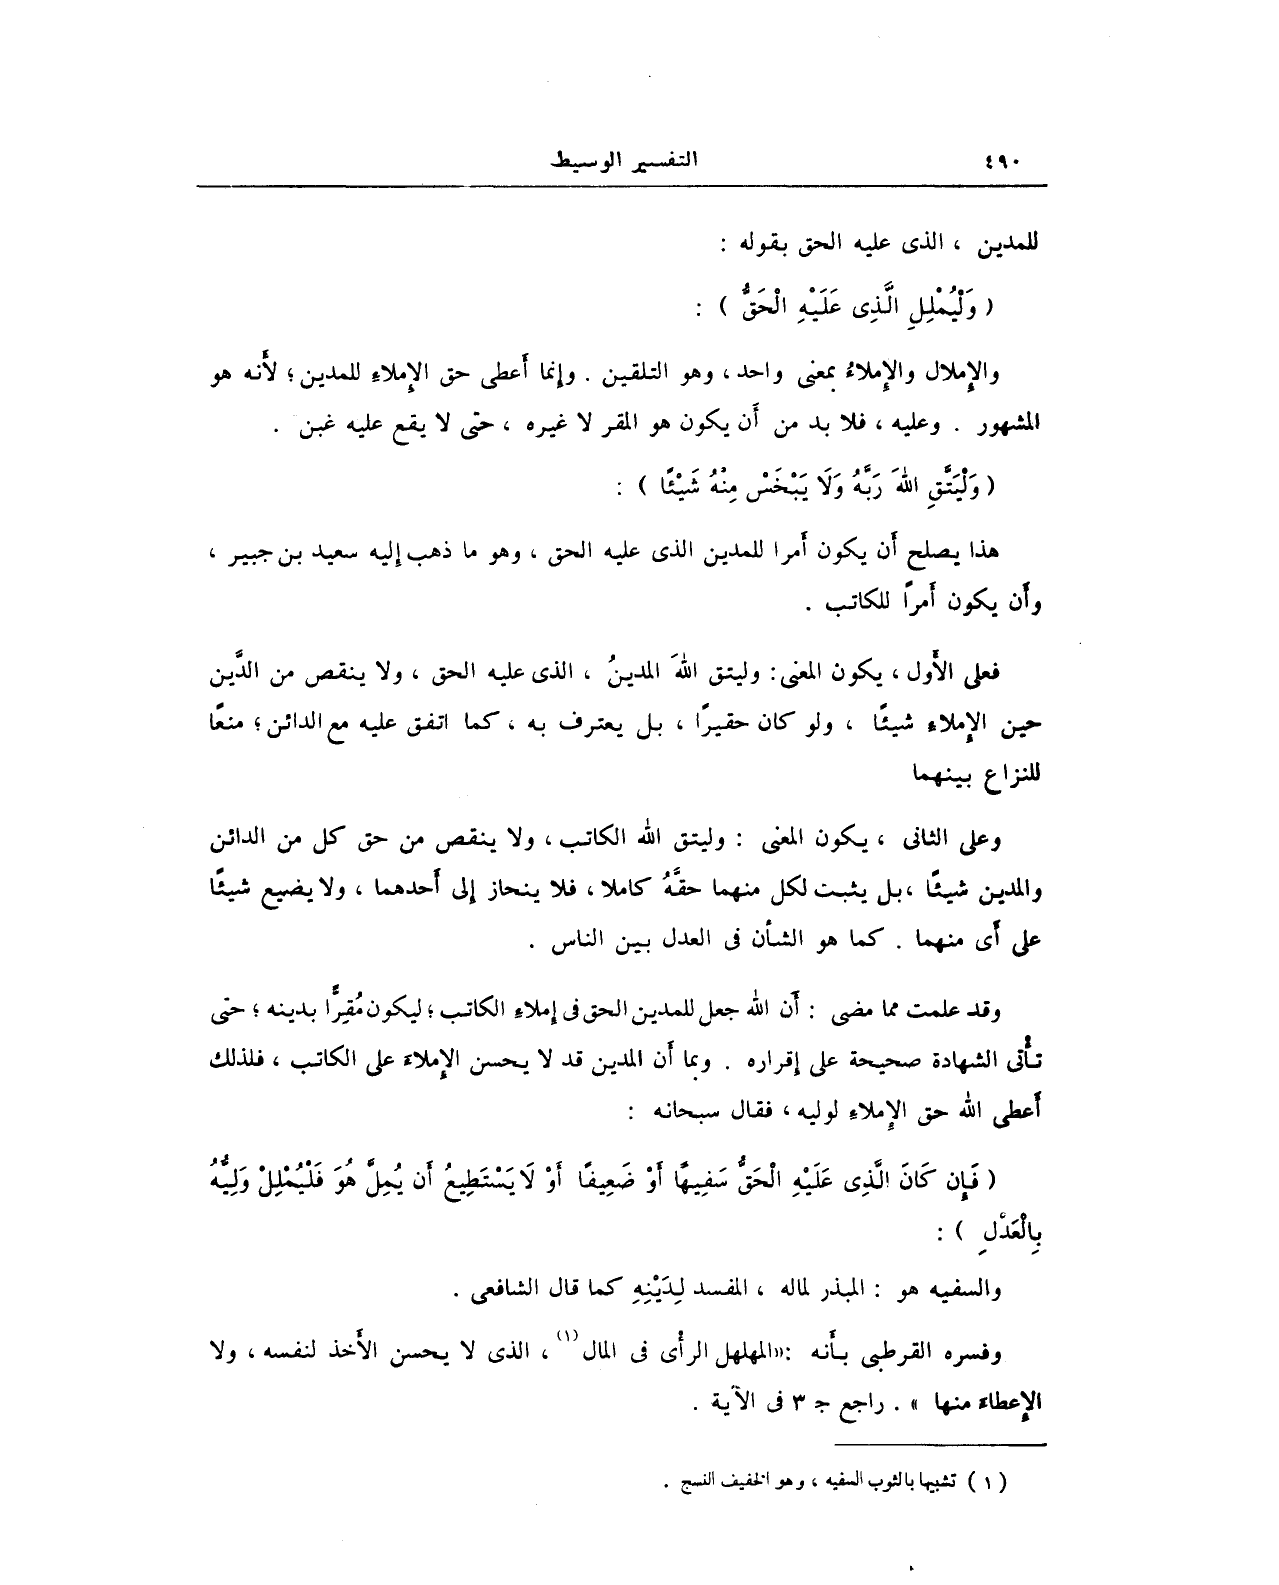 ٤٩٠ التفسير الوسيط
للمدين ، الذى عليه الحق بقوله :
( وَلْيُمْلِلِ الَّذِى عَلَيْهِ الْحَقُّ ) :
والإملال والإملاءُ بمعنى واحد ، وهو التلقين . وإنما أعطى حق الإملاءِ للمدين ؛ لأنه هو
المشهور . وعليه ، فلا بد من أن يكون هو المقر لا غيره ، حتى لا يقع عليه غبن .
( وَلْيَتَّقِ اللهَ رَبَّهُ وَلَا يَبْخَسْ مِنْهُ شَيْئًا ) :
هذا يصلح أن يكون أمرا للمدين الذى عليه الحق ، وهو ما ذهب إليه سعيد بن جبير ،
وأن يكون أمراً للكاتب .
فعلى الأول ، يكون المعنى : وليتق اللهَ المدينُ ، الذى عليه الحق ، ولا ينقص من الدَّين
حين الإملاءِ شيئًا ، ولو كان حقيرًا ، بل يعترف به ، كما اتفق عليه مع الدائن ؛ منعًا
للنزاع بينهما
وعلى الثانى ، يكون المعنى : وليتق الله الكاتب ، ولا ينقص من حق كل من الدائن
والمدين شيئًا ، بل يثبت لكل منهما حقَّهُ كاملا ، فلا ينحاز إلى أحدهما ، ولا يضيع شيئًا
على أى منهما . كما هو الشأن فى العدل بين الناس .
وقد علمت مما مضى : أن الله جعل للمدين الحق فى إملاءِ الكاتب ؛ ليكون مُقِرًّا بدينه ؛ حتى
تأتى الشهادة صحيحة على إقراره . وبما أن المدين قد لا يحسن الإملاءَ على الكاتب ، فلذلك
أعطى الله حق الإملاءِ لوليه ، فقال سبحانه :
( فَإِن كَانَ الَّذِى عَلَيْهِ الْحَقُّ سَفِيهًا أَوْ ضَعِيفًا أَوْ لَا يَسْتَطِيعُ أَن يُمِلَّ هُوَ فَلْيُمْلِلْ وَلِيُّهُ
بِالْعَدْلِ ) :
والسفيه هو : المبذر لماله ، المفسد لِدَيْنِهِ كما قال الشافعى .
وفسره القرطبى بأنه : «المهلهل الرأى فى المال (١) ، الذى لا يحسن الأخذ لنفسه ، ولا
الإعطاءَ منها » . راجع جـ ٣ فى الآية .
( ١ ) تشبيها بالثوب السفيه ، وهو الخفيف النسج .